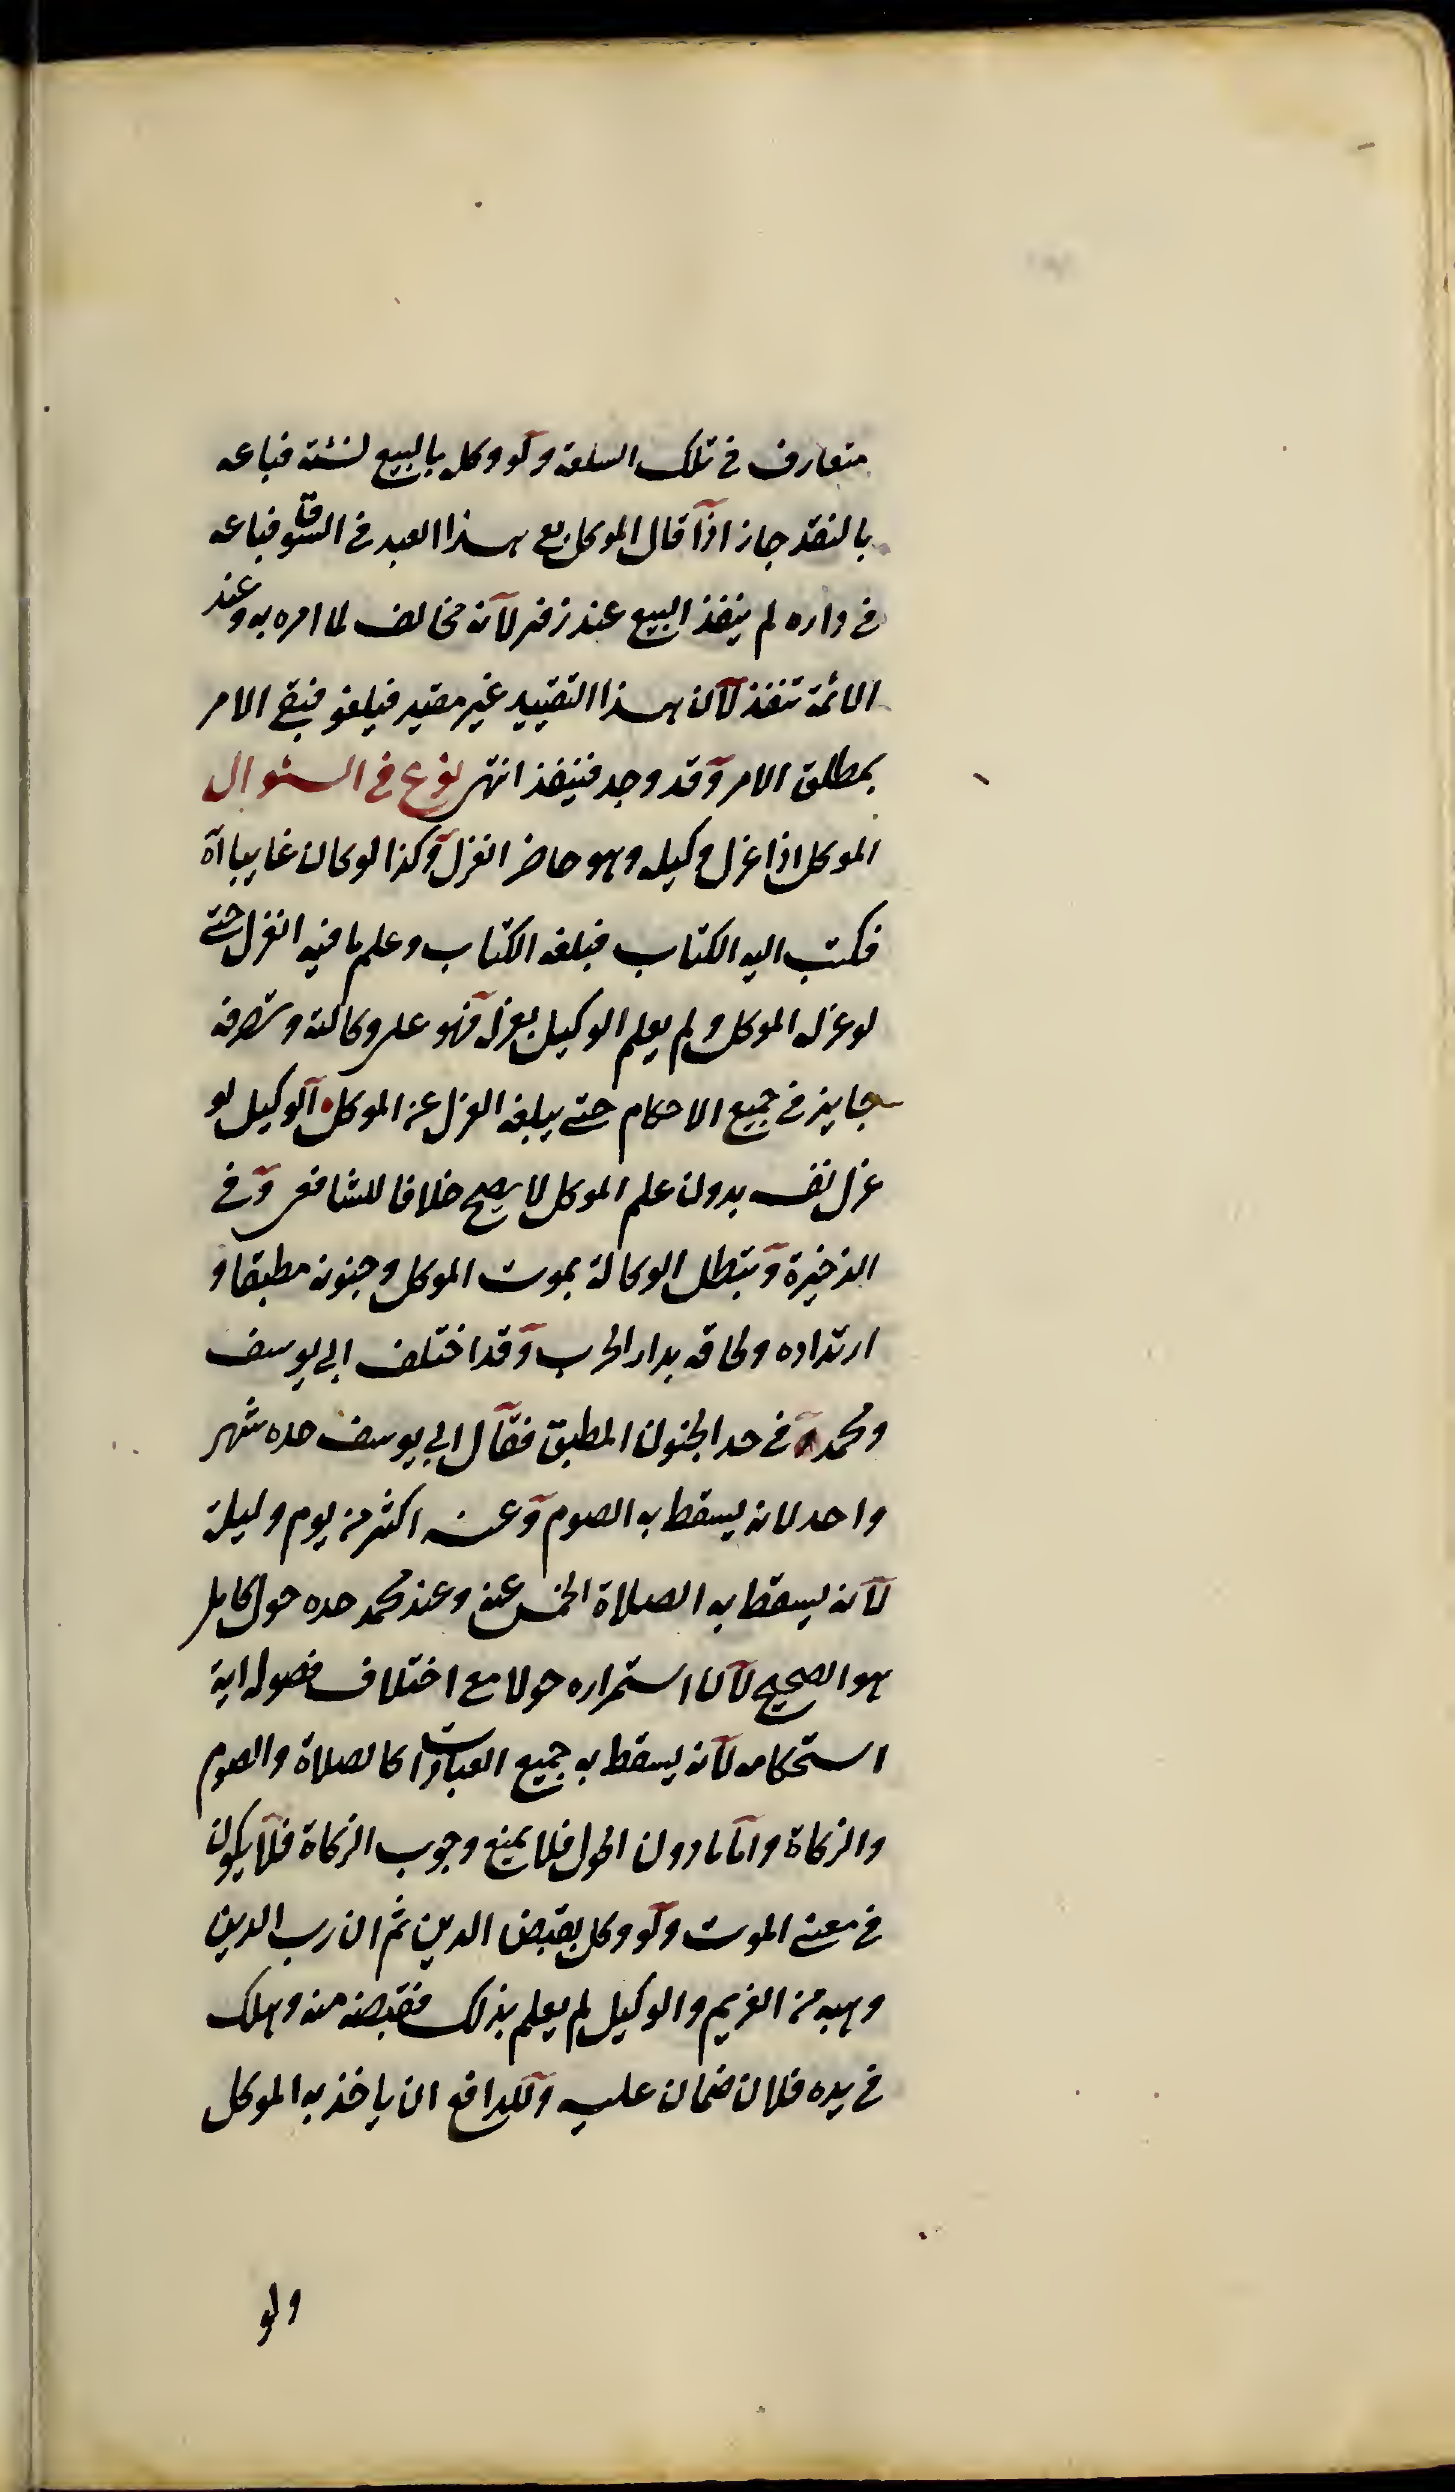 متعارف في تلك السلعة ولو وكل بالبيع نسئة فباعه
بالنقد جاز اذا قال الموكل بع هذا العبد في السوق فباعه
في داره لم ينفذ البيع عند زفر لانه مخالف لما امره به وعند
الائمة تنفذ لان هذا التقييد غير مقيد فيلغو فبقى الامر
بمطلق الامر وقد وجد فينفذ انتهى نوع في السئوال
الموكل اذا عزل وكيله وهو حاضر انعزل وكذا لو كان غايبا
فكتب اليه الكتاب فبلغه الكتاب وعلم ما فيه انعزل حتى
لو عزله الموكل ولم يعلم الوكيل بعزله فهو على وكالته وتصرفه
جايز في جميع الاحكام حتى يبلغه العزل عن الموكل الوكيل لو
عزل نفسه بدون علم الموكل لا يصح خلافا للشافعي وفي
الذخيرة وتبطل الوكالة بموت الموكل وجنونه مطبقا و
ارتداده ولحاقه بدار الحرب وقد اختلف ابي يوسف
ومحمد في حد الجنون المطبق فقال ابي يوسف حده شهر
واحد لانه يسقط به الصوم وعنه اكثر من يوم وليلة
لانه يسقط به الصلاة الخمس عنه وعند محمد حده حول كامل
هو الصحيح لان استمراره حولا مع اختلاف فصوله اية
استحكامه لانه يسقط به جميع العبادات كالصلاة والصوم
والزكاة واما ما دون الحول فلا يمنع وجوب الزكاة فلا يكون
في معنى الموت ولو وكل بقبض الدين ثم ان رب الدين
وهبه من الغريم والوكيل لم يعلم بذلك فقبضه منه وهلك
في يده فلان ضمان عليه وللدافع ان ياخذ به الموكل
ولو